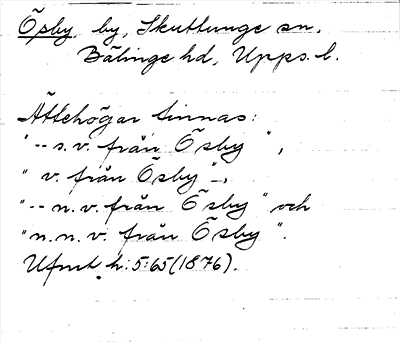 Ösby, by, Skuttunge sn.
Bälinge hd, Upps. l.
Ättehögar finnas:
"-- s.v. från Ösby",
" v. från Ösby",
"-- n.v. från Ösby" och
"n.n.v. från Ösby".
Ufmt h:5:65 (1876).